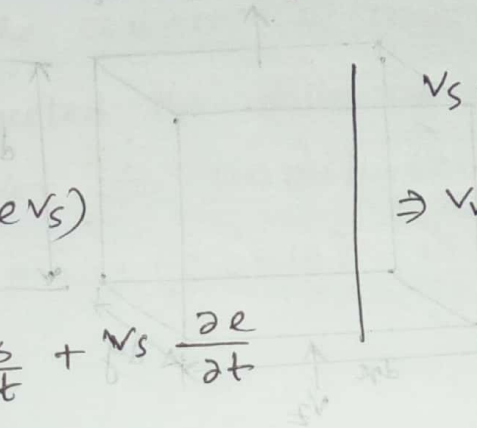 V_S
e V_S)
⇒ V
+ V_S ∂e/∂t